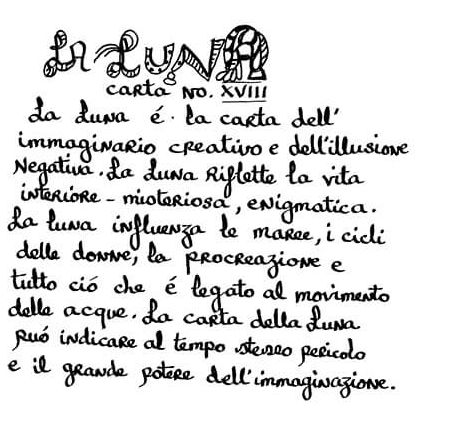 LA LUNA
CARTA NO. XVIII
La Luna é. la carta dell'
immaginario creativo e dell'illusione
Negativa. La Luna Riflette la vita
interiore - misteriosa, enigmatica.
La luna influenza le maree, i cicli
delle donne, la procreazione e
tutto ció che é legato al movimento
delle acque. La carta della Luna
puó indicare al tempo stesso pericolo
e il grande potere dell'immaginazione.